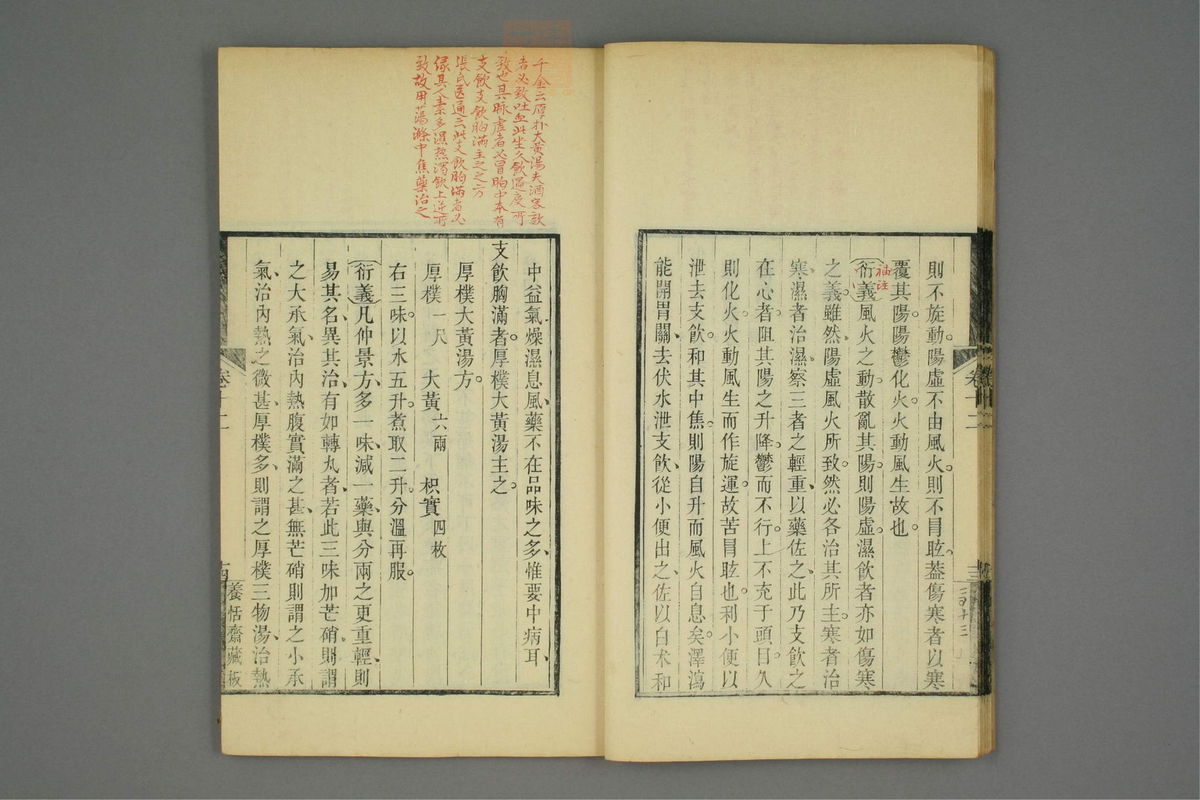 則不旋動。陽虛不由風火。則不冒眩。蓋傷寒者以寒
覆其陽。陽鬱化火。火動風生故也。
補註
衍義風火之動。散亂其陽。則陽虛。濕飲者亦如傷寒
之義。雖然、陽虛風火所致。然必各治其所主。寒者治
寒、濕者治濕、察三者之輕重、以藥佐之、此乃支飲之
在心者。阻其陽之升降。鬱而不行。上不充于頭目。久
則化火。火動風生而作旋運。故苦冒眩也。利小便以
泄去支飲。和其中焦。則陽自升而風火自息矣。澤瀉
能開胃關、去伏水泄支飲、從小便出之、佐以白朮和
卷十二
千金云厚朴大黃湯夫酒客欬
者必致吐血此坐久飲過度所
致也其脉虛者必冒胸中本有
支飲支飲胸滿主之之方
張氏医通云此支飲胸滿者必
緣其人素多濕熱濁飲上逆所
致故用蕩滌中焦藥治之
中益氣燥濕息風、藥不在品味之多、惟要中病耳、
支飲胸滿。者厚樸大黃湯主之。
厚樸大黃湯方。
厚樸一尺 大黃六兩 枳實四枚
右三味。以水五升。煮取二升。分溫再服。
衍義凡仲景方、多一味、減一藥、與分兩之更重輕、則
易其名、異其治、有如轉丸者、若此三味加芒硝、則謂
之大承氣、治內熱腹實滿之甚、無芒硝則謂之小承
氣、治內熱之微甚、厚樸多、則謂之厚樸三物湯、治熱
卷十二
十四
養恬齋藏板